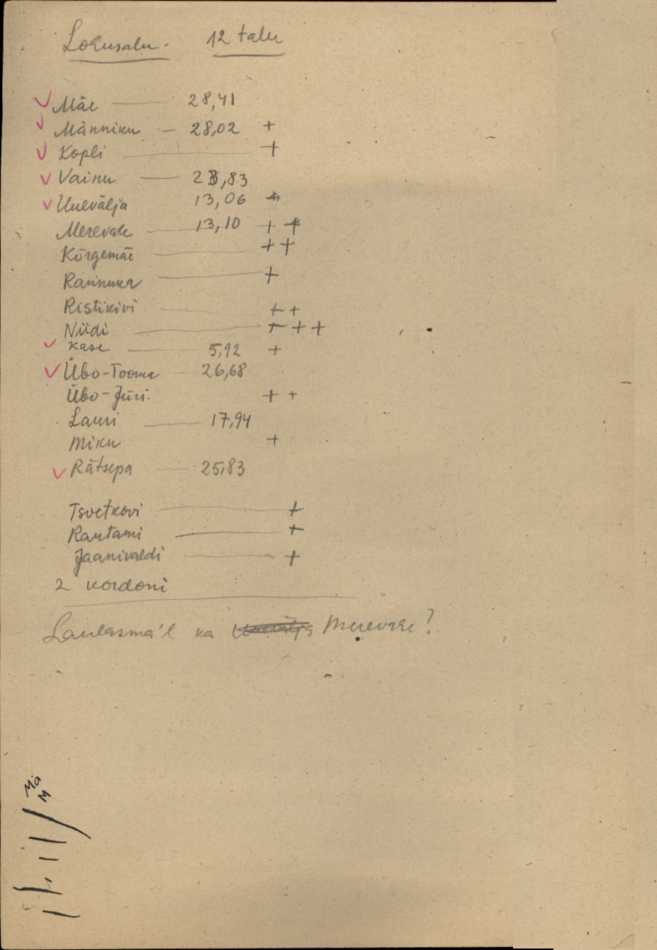 Lohusalu. 12 talu
Mäe — 28,41
Männiku — 28,02 +
Kopli — +
Vainu — 23,83
Uuevälja 13,06 +
Merevahe — 13,10 + +
Kõrgemäe — ++
Rannuka — +
Ristikivi — ++
Niidi — +++
Kase — 5,92 +
Übo-Tooma — 26,68
Übo-Jüri. ++
Lauri — 17,94
Miku +
Rätsepa — 25,83
Tsvetkovi — +
Rantami — +
Jaanivaldi — +
2 kordoni
Laulasma'l ka Merevahe?
Ma
M